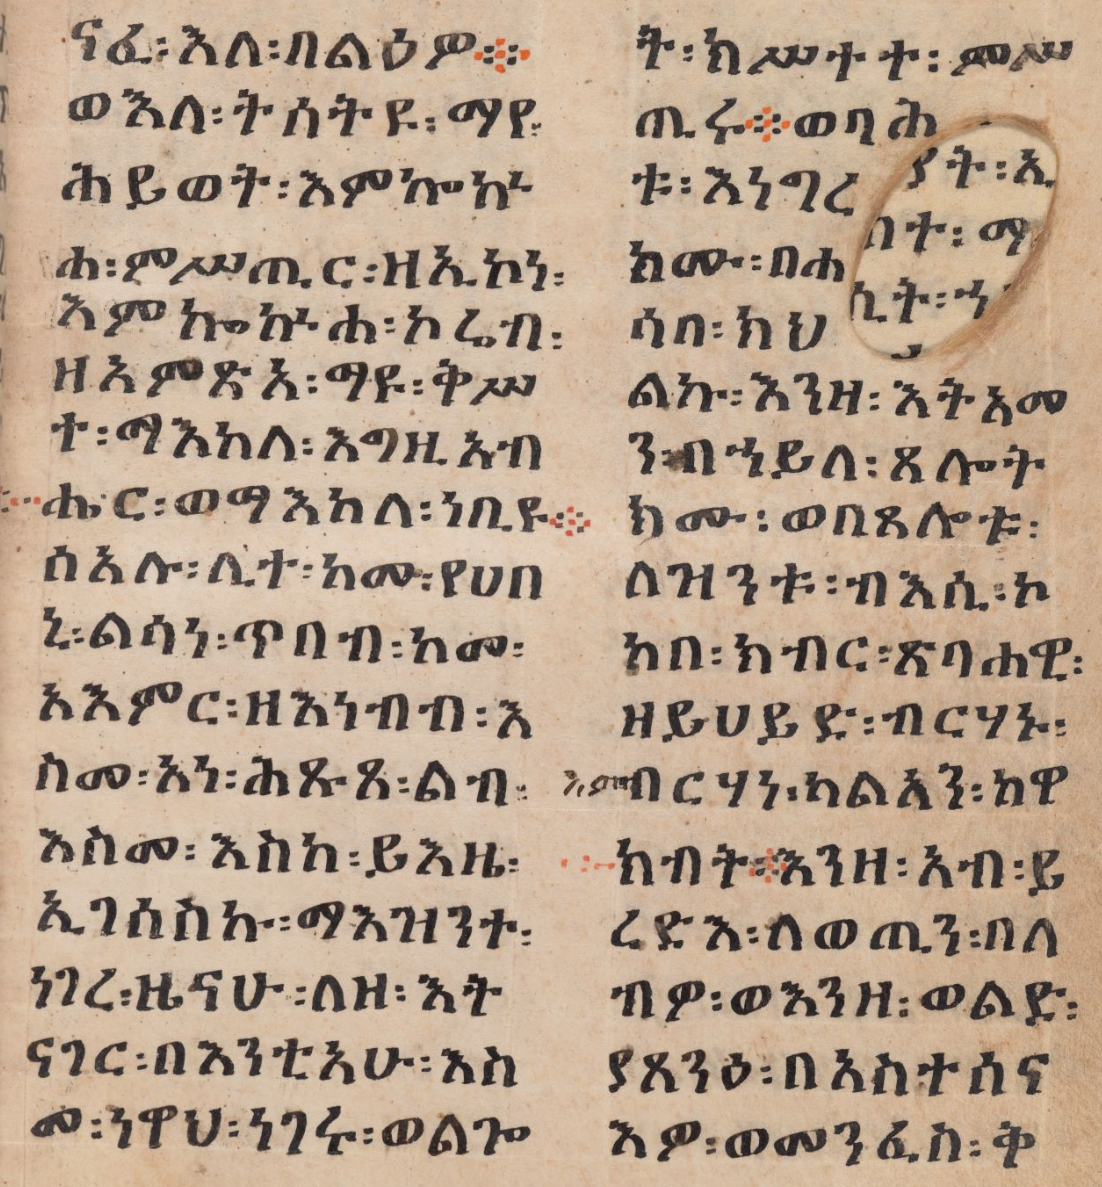 ናፈ፡እለ፡በልዕዎ፨
ወእለ፡ትሰትዩ፡ማየ፡
ሕይወት፡እምኰኵ
ሐ፡ምሥጢር፡ዘኢኮነ፡
እምኰኵሐ፡ኮሬብ፡
ዘአምጽአ፡ማየ፡ቅሥ
ተ፡ማእከለ፡እግዚአብ
ሔር፡ወማእከለ፡ነቢየ፨
ሰአሉ፡ሊተ፡ከመ፡የሀበ
ኒ፡ልሳነ፡ጥበብ፡ከመ፡
አእምር፡ዘእነብብ፡እ
ስመ፡አነ፡ሕጹጸ፡ልብ፡
እስመ፡እስከ፡ይእዜ፡
ኢገሰስኩ፡ማእዝንተ፡
ነገረ፡ዜናሁ፡ለዘ፡እት
ናገር፡በእንቲአሁ፡እስ
መ፡ነዋህ፡ነገሩ፡ወልጐ
ት፡ክሥተተ፡ምሥ
ጢሩ፨ወባሕ
ቱ፡እነግረ
ክሙ፡በሐ
ሳበ፡ክህ
ልኩ፡እንዘ፡እትአመ
ን፡በኀይለ፡ጸሎት
ክሙ፡ወበጸሎቱ፡
ለዝንቱ፡ብእሲ፡ኮ
ከበ፡ክብር፡ጽባሐዊ፡
ዘይሀይድ፡ብርሃኑ፡
እምብርሃነ፡ካልኣን፡ከዋ
ክብት፨እንዘ፡አብ፡ይ
ረድእ፡ለወጢን፡በለ
ብዎ፡ወእንዘ፡ወልድ፡
ያጸንዕ፡በአስተሰና
እዎ፡ወመንፈስ፡ቅ